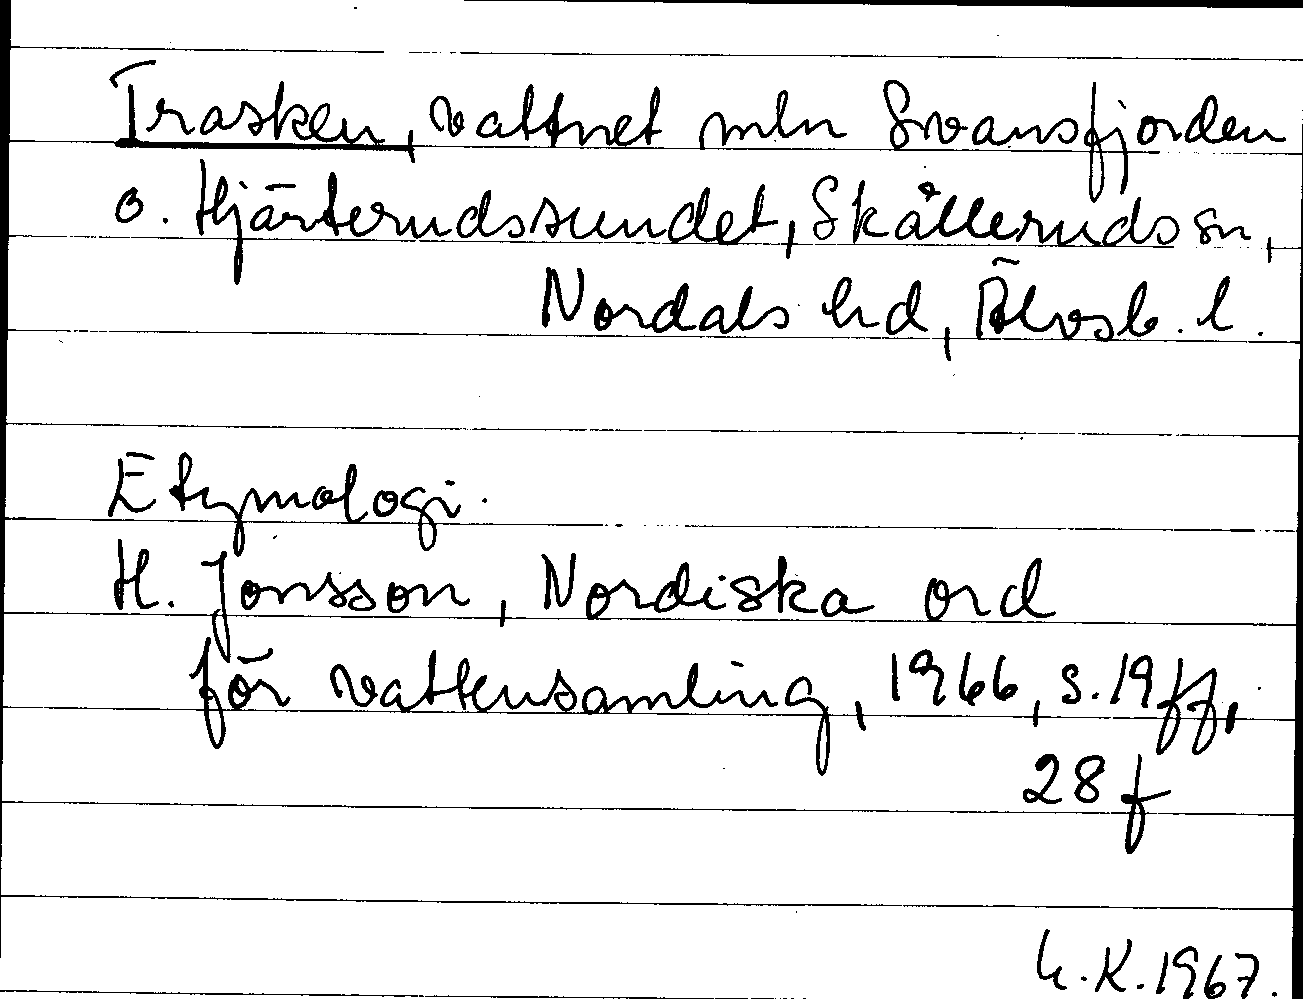 Trasken, vattnet mln Svansfjorden
o. Hjärterudssundet, Skålleruds sn,
Nordals hd, Älvsb. l.
Etymologi.
H. Jonsson, Nordiska ord
för vattensamling, 1966, s. 19 ff,
28 f
K. 1967.